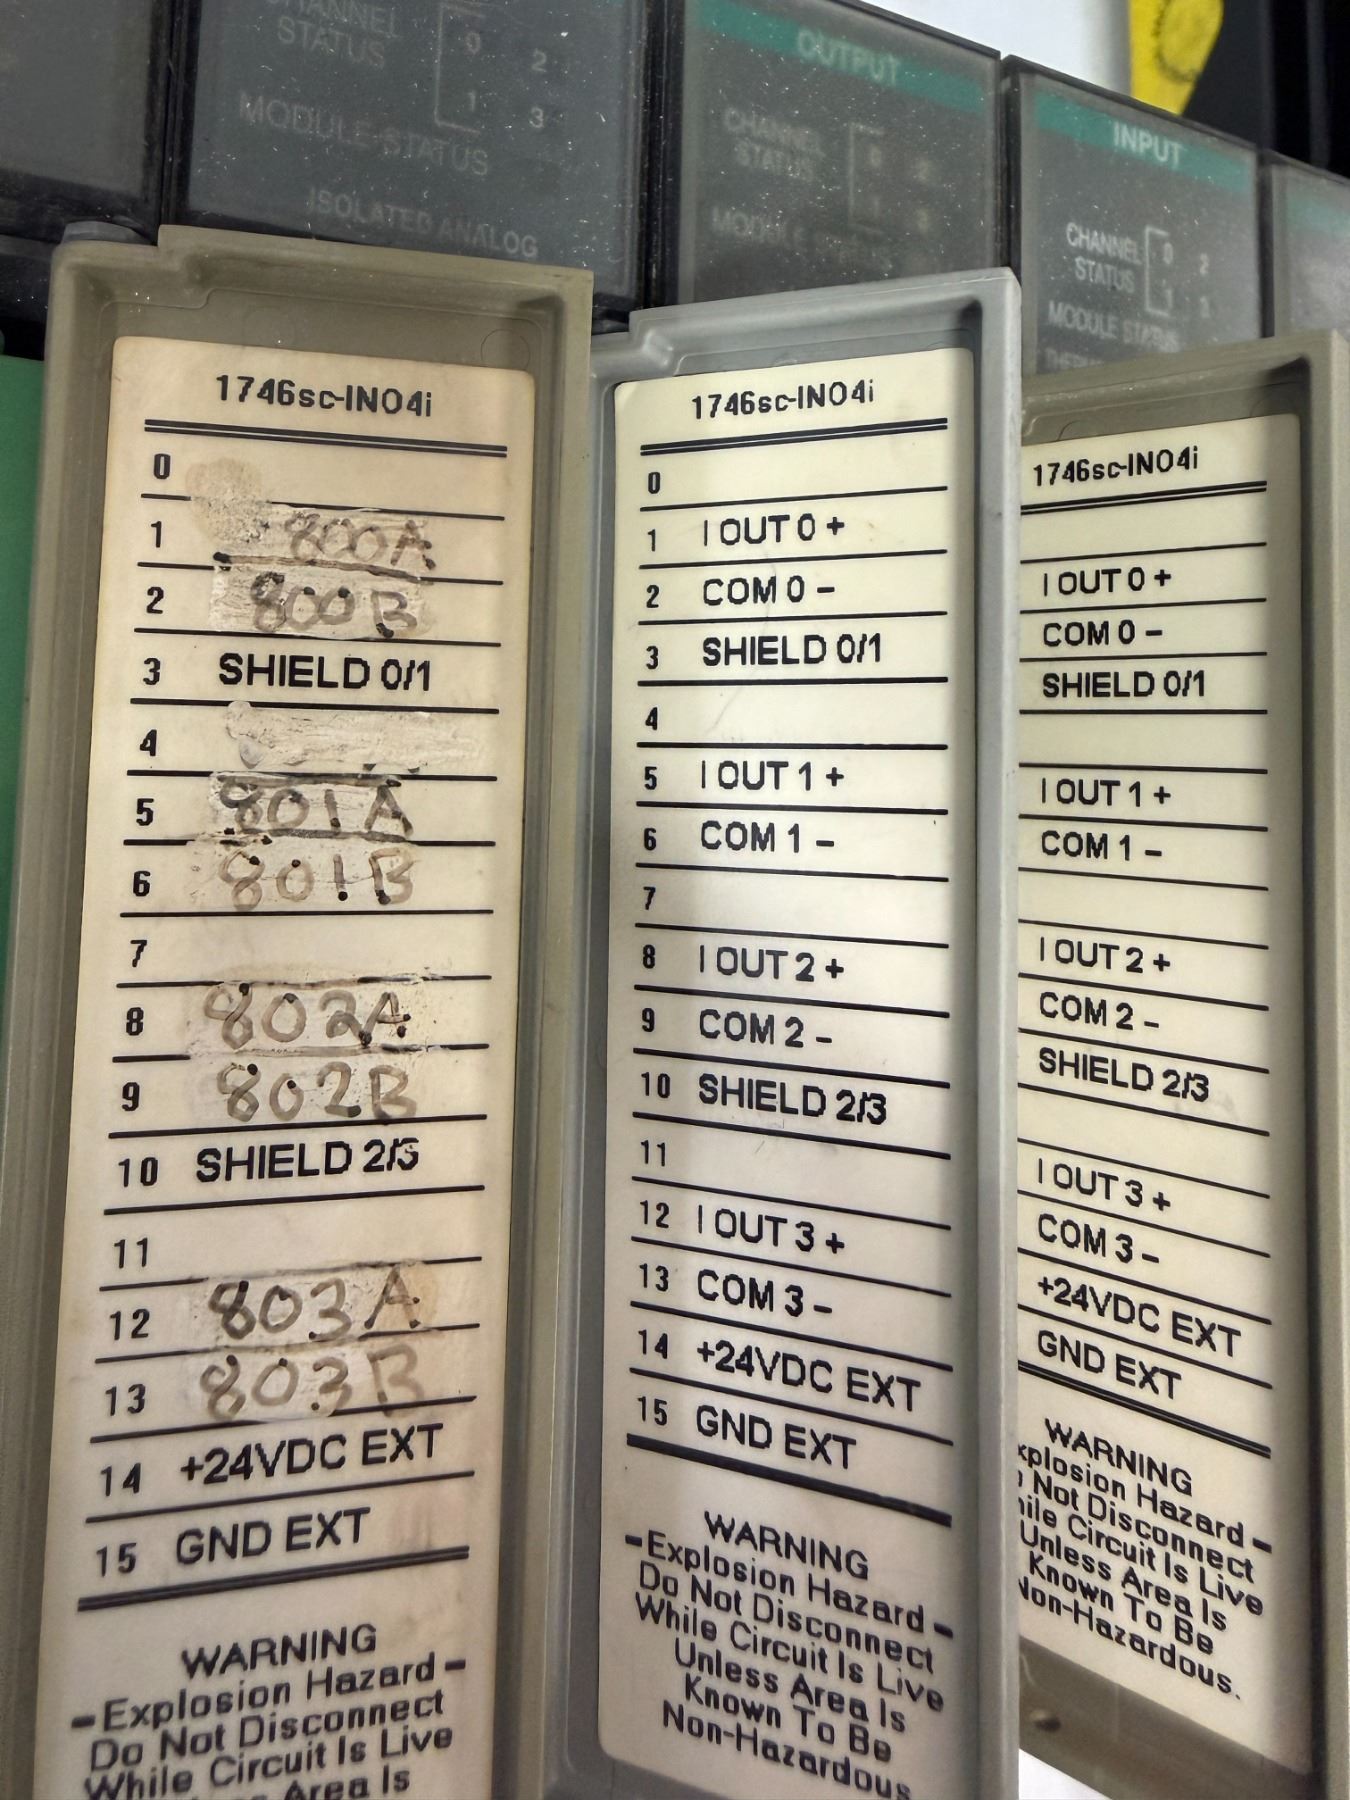 CHANNEL
STATUS
0 2
1 3
MODULE STATUS
ISOLATED ANALOG
OUTPUT
CHANNEL
STATUS
0 2
1 3
MODULE STATUS
INPUT
CHANNEL
STATUS
0 2
1 3
MODULE STATUS
1746sc-INO4i
0
1 800A
2 800B
3 SHIELD 0/1
4
5 801A
6 801B
7
8 802A
9 802B
10 SHIELD 2/3
11
12 803A
13 803B
14 +24VDC EXT
15 GND EXT
WARNING
-Explosion Hazard-
Do Not Disconnect
While Circuit Is Live
Area Is
1746sc-INO4i
0
1 I OUT 0 +
2 COM 0 -
3 SHIELD 0/1
4
5 I OUT 1 +
6 COM 1 -
7
8 I OUT 2 +
9 COM 2 -
10 SHIELD 2/3
11
12 I OUT 3 +
13 COM 3 -
14 +24VDC EXT
15 GND EXT
WARNING
-Explosion Hazard-
Do Not Disconnect
While Circuit Is Live
Unless Area Is
Known To Be
Non-Hazardous
1746sc-INO4i
I OUT 0 +
COM 0 -
SHIELD 0/1
I OUT 1 +
COM 1 -
I OUT 2 +
COM 2 -
SHIELD 2/3
I OUT 3 +
COM 3 -
+24VDC EXT
GND EXT
WARNING
xplosion Hazard-
Not Disconnect
hile Circuit Is Live
Unless Area Is
Known To Be
Non-Hazardous.